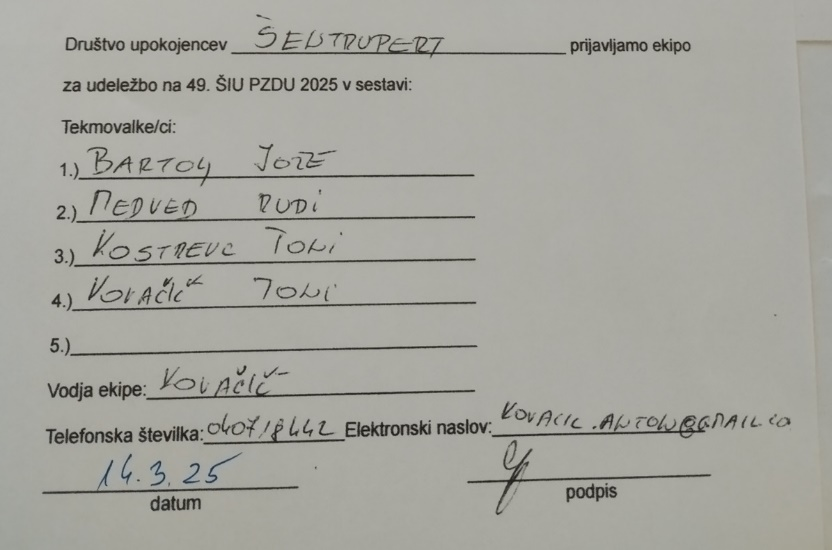 Društvo upokojencev ŠENTRUPERT prijavljamo ekipo
za udeležbo na 49. ŠIU PZDU 2025 v sestavi:
Tekmovalke/ci:
1.) BARTOLJ JOŽE
2.) MEDVED RUDI
3.) KOSTREVC TONI
4.) KOVAČIČ TONI
5.)
Vodja ekipe: KOVAČIČ
Telefonska številka: 040718442 Elektronski naslov: KOVACIC.ANTON@GMAIL.CO
14.3.25
datum podpis